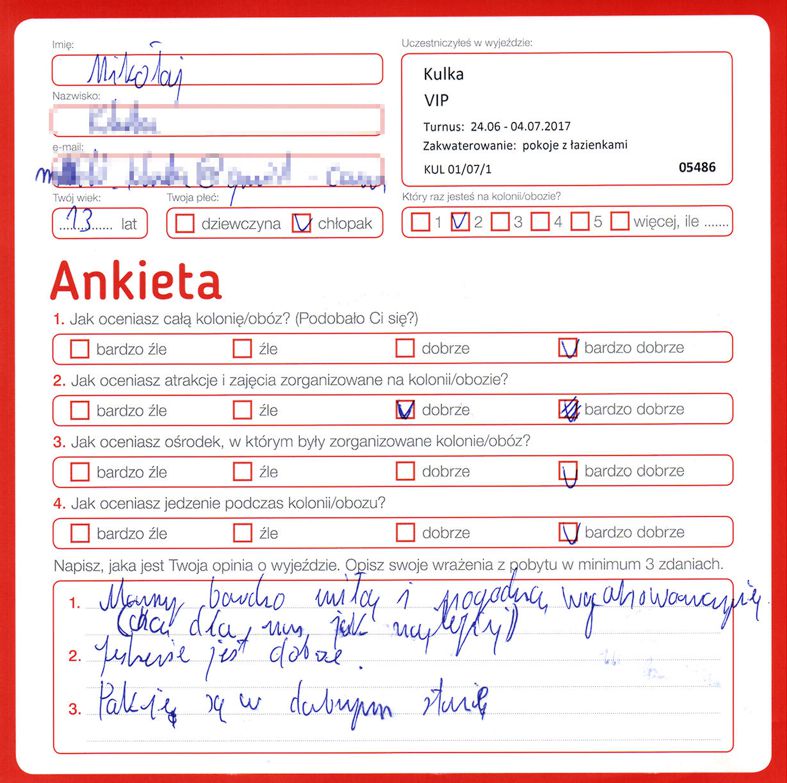 Imię:
Mikołaj
Nazwisko:
e-mail:
Twój wiek:
13 lat
Twoja płeć:
dziewczyna chłopak
Uczestniczyłeś w wyjeździe:
Kulka
VIP
Turnus: 24.06 - 04.07.2017
Zakwaterowanie: pokoje z łazienkami
KUL 01/07/1 05486
Który raz jesteś na kolonii/obozie?
1 2 3 4 5 więcej, ile .......
Ankieta
1. Jak oceniasz całą kolonię/obóz? (Podobało Ci się?)
bardzo źle źle dobrze bardzo dobrze
2. Jak oceniasz atrakcje i zajęcia zorganizowane na kolonii/obozie?
bardzo źle źle dobrze bardzo dobrze
3. Jak oceniasz ośrodek, w którym były zorganizowane kolonie/obóz?
bardzo źle źle dobrze bardzo dobrze
4. Jak oceniasz jedzenie podczas kolonii/obozu?
bardzo źle źle dobrze bardzo dobrze
Napisz, jaka jest Twoja opinia o wyjeździe. Opisz swoje wrażenia z pobytu w minimum 3 zdaniach.
1. Mamy bardzo miłą i pogodną
(chcą dla nas jak najlepiej)
2. jest dobre.
3. są w dobrym